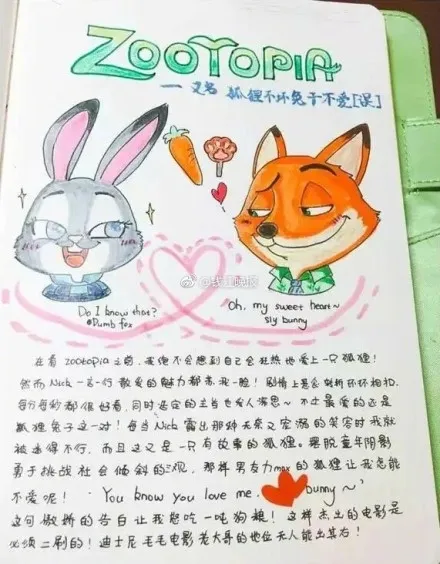 ZOOTOPIA
——又名 狐狸不坏兔子不爱[误]
@钱江晚报
Do I know that?
@Dumb fox
Oh, my sweet heart~
sly bunny
在看zootopia之前，我绝不会想到自己会狂热地爱上一只狐狸！
然而Nick一言一行散发的魅力都苏我一脸！剧情上更会剖析环环相扣，
每分每秒都很好看，同时选定的主旨也发人深思~不过最爱的还是
狐狸兔子这一对！每当Nick露出那种无奈又宠溺的笑容时我就
被迷得不行，而且这又是一只有故事的狐狸。摆脱童年阴影
勇于挑战社会倾斜的三观，那样男友力max的狐狸让我怎能
不爱呢！ You know you love me, bunny~
这句傲娇的告白让我想吃一吨狗粮！这样杰出的电影是
必须二刷的！迪士尼毛毛电影老大哥的地位无人能出其右！